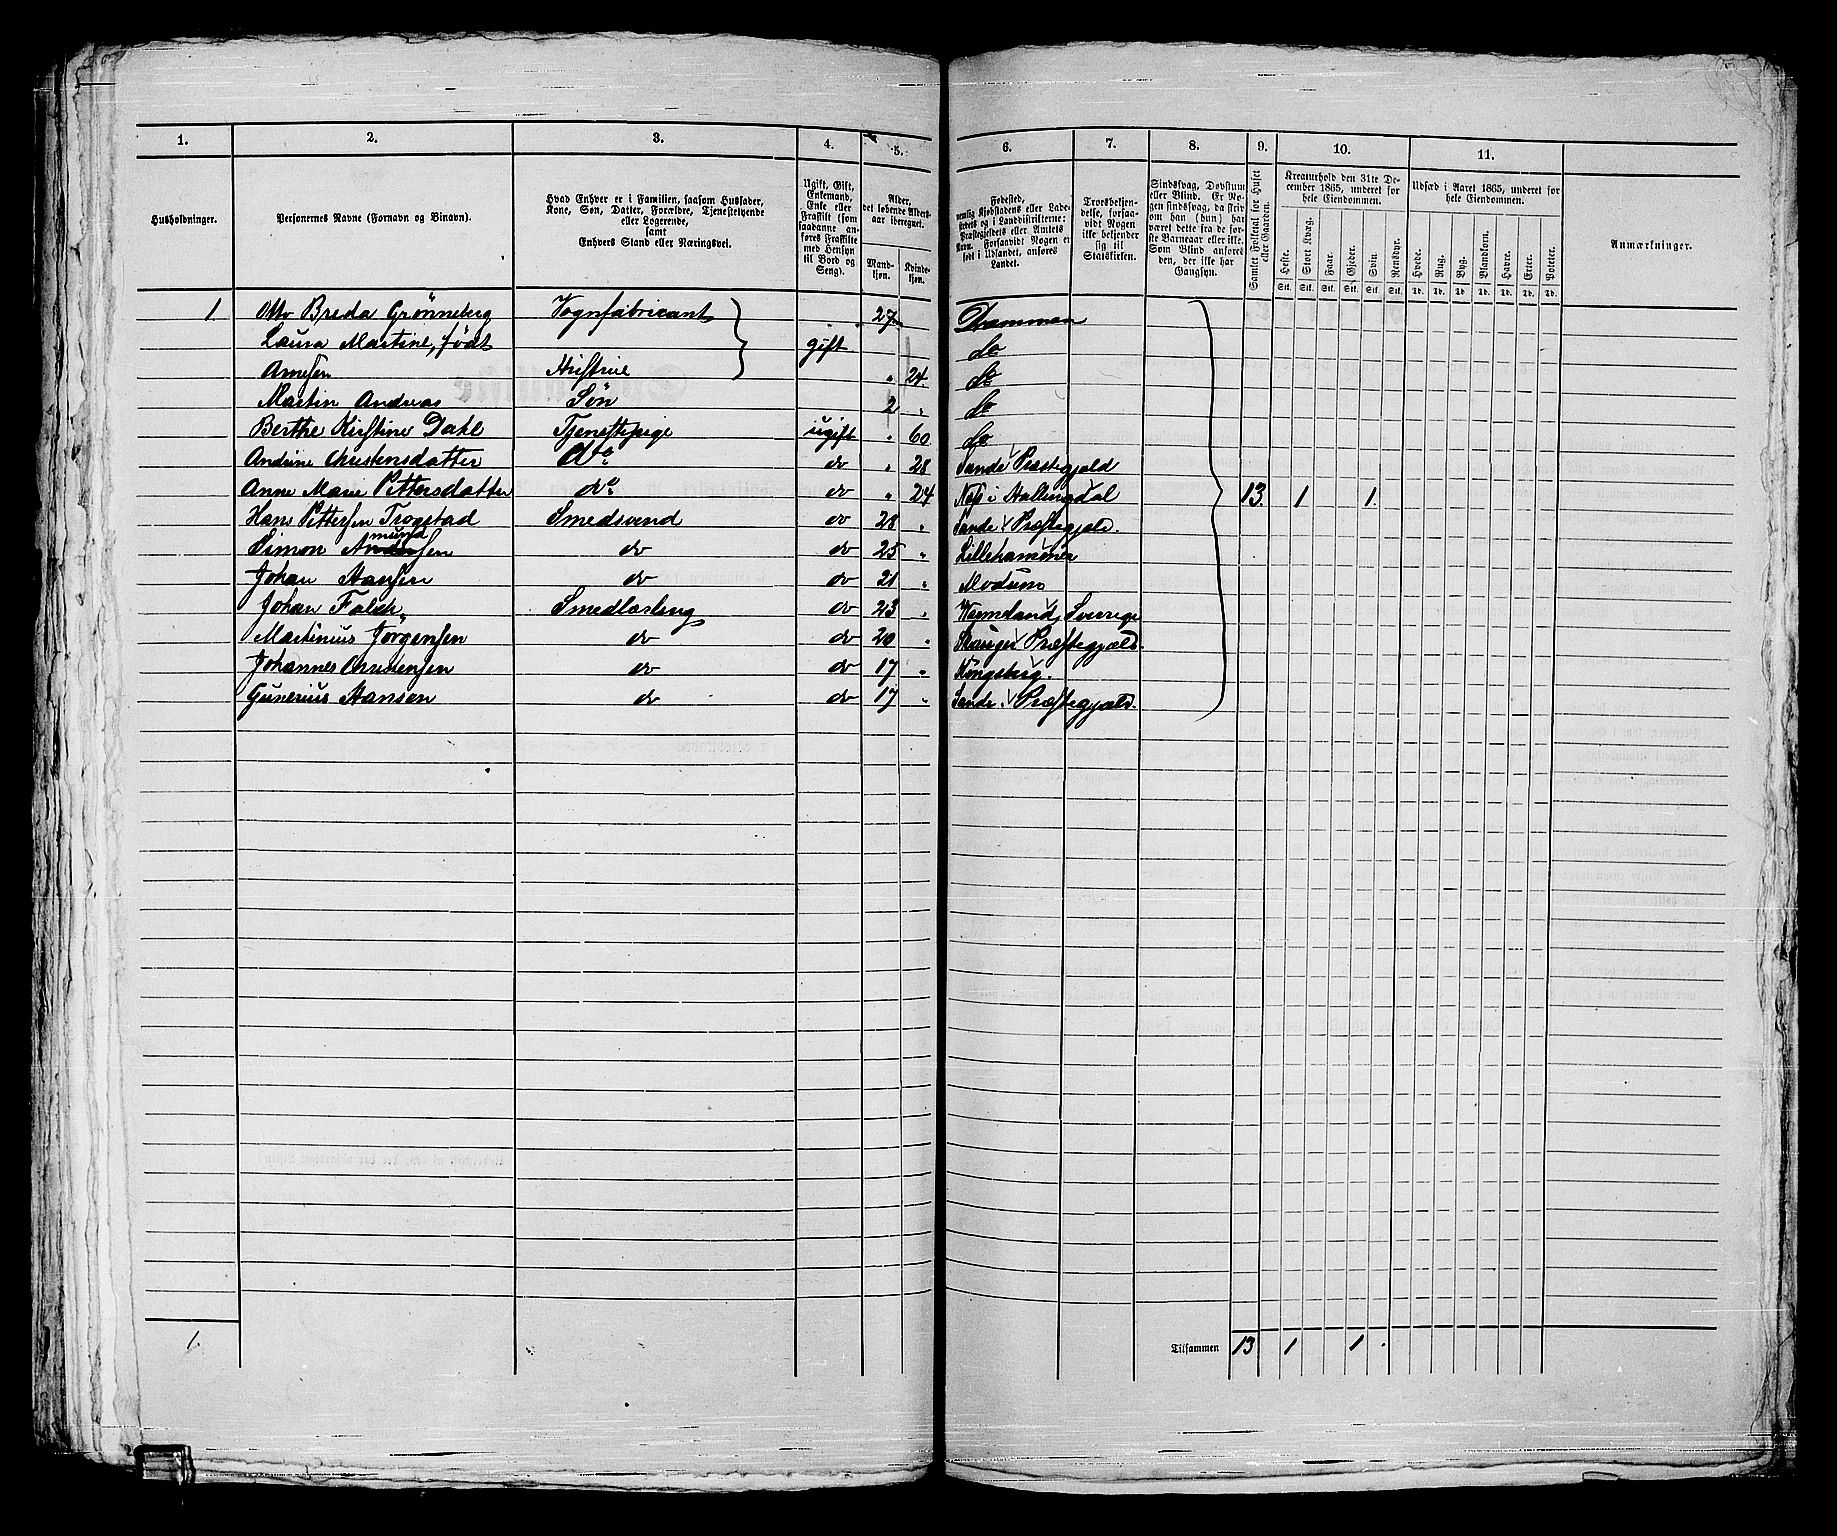 1. 2. 3. 4. 5. 6. 7. 8. 9. 10. 11.
Husholdninger.
Personernes Navne (Fornavn og Binavn).
Hvad Enhver er i Familien, saasom Husfader, Kone, Søn, Datter, Forældre, Tjenestetyende eller Logerende, samt Enhvers Stand eller Næringsvei.
Ugift, Gift, Enkemand, Enke eller Fraskilt (som saadanne anføres Fraskilte med Hensyn til Bord og Seng).
Alder, det løbende Aldersaar iberegnet.
Mandkjøn. Kvindekjøn.
Fødested, nemlig Kjøbstadens eller Ladestedets og i Landdistrikterne: Præstegjeldets eller Amtets Navn. Forsaavidt Nogen er født i Udlandet, anføres Landet.
Troesbekjendelse, forsaavidt Nogen ikke bekjender sig til Statskirken.
Sindssvag, Døvstum eller Blind. Er Nogen sindssvag, da skriv om han (hun) har været dette fra de første Barneaar eller ikke. Som Blind anføres den, der ikke har Gangsyn.
Samlet Folketal for Huset eller Gaarden.
Kreaturhold den 31te December 1865, underet for hele Eiendommen.
Heste. Stort Kvæg. Faar. Gjeder. Svin. Rensdyr.
Stk. Stk. Stk. Stk. Stk. Stk.
Udsæd i Aaret 1865, underet for hele Eiendommen.
Hvede. Rug. Byg. Blandkorn. Havre. Erter. Poteter.
Td. Td. Td. Td. Td. Td. Td.
Anmærkninger.
1. Otto Breda Grønneberg Vognfabricant 27 Drammen
Laura Martine, født gift do
Arnesen Hustrue " 24 do
Martin Andreas Søn 2 " do
Berthe Kirstine Dahl Tjenestepige ugift " 60 do
Andrine Christensdatter do do " 28 Sande Præstegjæld
Anne Marie Pettersdatter do do " 24 Næs i Hallingdal 13. 1 1.
Hans Pettersen Trogstad Smedsvend do 28 " Sande Præstegjæld.
Simon Amundsen do do 25 " Lillehammer
Johan Hansen do do 21 " Modum
Johan Falch Smedlærling do 23 " Vermland, Sverige
Martinius Jørgensen do do 20 " Skauger Præstegjæld.
Johannes Christensen do do 17 " Kongsberg.
Gunerius Hansen do do 17 " Sande Præstegjæld.
1. Tilsammen 13 1 1.